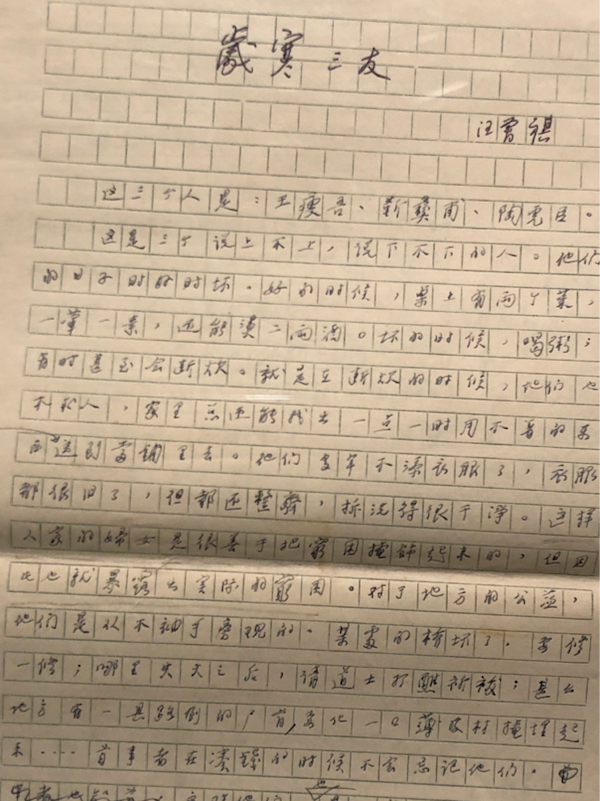 歲寒三友
汪曾祺
这三个人是:王瘦吾、靳彝甫、陶虎臣。
这是三个说上不上,说下不下的人。他们
的日子时好时坏。好的时候,桌上有两个菜,
一荤一素,还能烫二两酒。坏的时候,喝粥;
有时甚至会断炊。就是在断炊的时候,他们也
不求人,家里总还能找出一点一时用不着的东
西送到当铺里去。他们多年不添衣服了,衣服
都很旧了,但都还整齐,拆洗得很干净。这样
人家的妇女是很善于把窮困掩飾起来的,但因
此也就暴露出实际的窮困。对于地方的公益,
他们是从不袖手旁观的。某处的桥坏了,要修
一修;哪里失火之后,请道士打醮祈禳;甚么
地方有一具路倒的尸首,要他一口薄皮材掩埋起
来……首事者在凑錢的时候不会忘记他们。